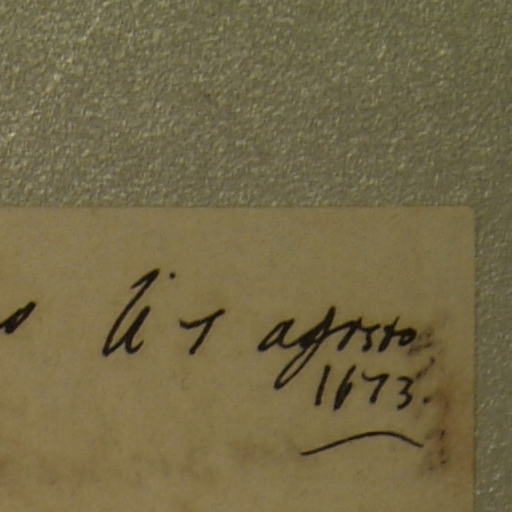 li 7 agosto
1673.